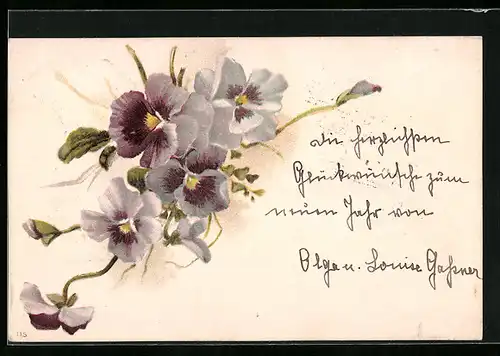 die herzlichsten
Glückwünsche zum
neuen Jahr von
Olga u. Louise Gaßner
115